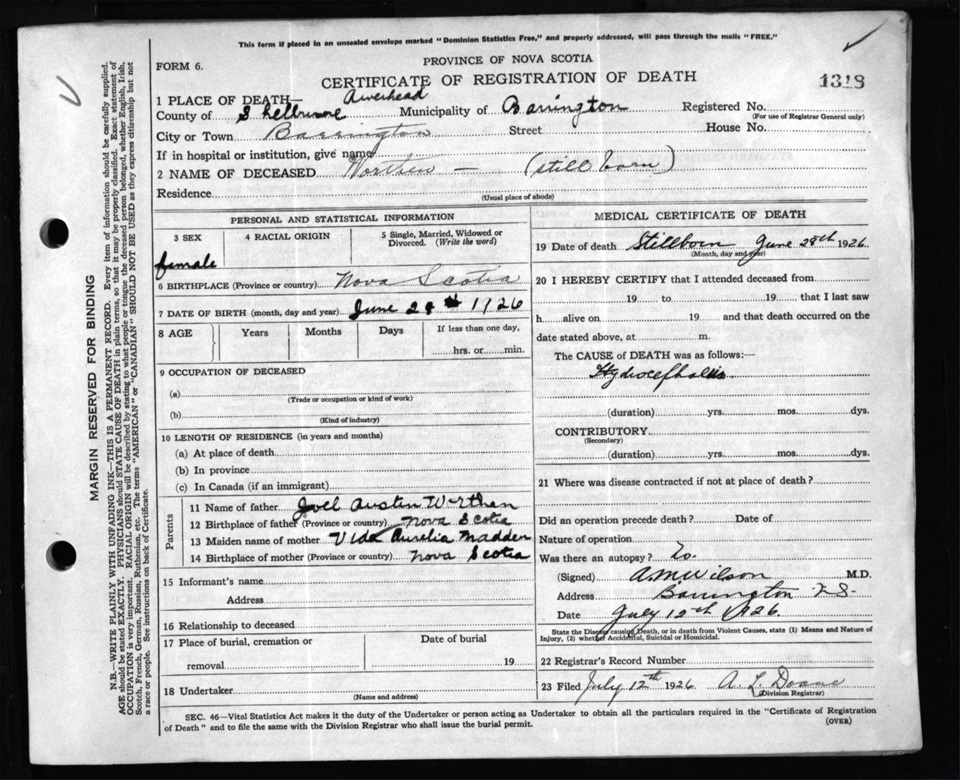 This form if placed in an unsealed envelope marked "Dominion Statistics Free," and properly addressed, will pass through the mails "FREE."
FORM 6.
PROVINCE OF NOVA SCOTIA
CERTIFICATE OF REGISTRATION OF DEATH
1318
1 PLACE OF DEATH—
County of Shelburne Municipality of Barrington Registered No.
(For use of Registrar General only)
City or Town Barrington Street House No.
If in hospital or institution, give name
2 NAME OF DECEASED Worthen — (still born)
Residence
(Usual place of abode)
PERSONAL AND STATISTICAL INFORMATION
3 SEX
4 RACIAL ORIGIN
5 Single, Married, Widowed or Divorced. (Write the word)
female
6 BIRTHPLACE (Province or country) Nova Scotia
7 DATE OF BIRTH (month, day and year) June 28th 1926
8 AGE Years Months Days If less than one day,
hrs. or min.
9 OCCUPATION OF DECEASED
(a)
(Trade or occupation or kind of work)
(b)
(Kind of industry)
10 LENGTH OF RESIDENCE (in years and months)
(a) At place of death
(b) In province
(c) In Canada (if an immigrant)
Parents
11 Name of father Joel Austin Worthen
12 Birthplace of father (Province or country) Nova Scotia
13 Maiden name of mother Vida Aurelia Madden
14 Birthplace of mother (Province or country) Nova Scotia
15 Informant's name
Address
16 Relationship to deceased
17 Place of burial, cremation or removal
Date of burial
19
18 Undertaker
(Name and address)
MEDICAL CERTIFICATE OF DEATH
19 Date of death Stillborn June 28th 1926
(Month, day and year)
20 I HEREBY CERTIFY that I attended deceased from
19 to 19 that I last saw
h alive on 19 and that death occurred on the
date stated above, at m.
The CAUSE of DEATH was as follows:—
Hydrocephalus
(duration) yrs. mos. dys.
CONTRIBUTORY
(Secondary)
(duration) yrs. mos. dys.
21 Where was disease contracted if not at place of death?
Did an operation precede death? Date of
Nature of operation
Was there an autopsy? No.
(Signed) A M Wilson M.D.
Address Barrington N.S.
Date July 12th 1926.
State the Disease causing Death, or in death from Violent Causes, state (1) Means and Nature of
Injury, (2) whether Accidental, Suicidal or Homicidal.
22 Registrar's Record Number
23 Filed July 12th 1926 A. L. Doane
(Division Registrar)
SEC. 46—Vital Statistics Act makes it the duty of the Undertaker or person acting as Undertaker to obtain all the particulars required in the "Certificate of Registration
of Death" and to file the same with the Division Registrar who shall issue the burial permit.
(OVER)
MARGIN RESERVED FOR BINDING
N.B.—WRITE PLAINLY WITH UNFADING INK—THIS IS A PERMANENT RECORD. Every item of information should be carefully supplied.
AGE should be stated EXACTLY. PHYSICIANS should STATE CAUSE OF DEATH in plain terms, so that it may be properly classified. Exact statement of
OCCUPATION is very important. RACIAL ORIGIN will be described by stating to what people or tongue the deceased person belonged, whether English, Irish,
Scotch, French, German, Russian, Ruthenian, etc. The terms "AMERICAN" or "CANADIAN" SHOULD NOT BE USED as they express citizenship but not
a race or people. See instructions on back of Certificate.